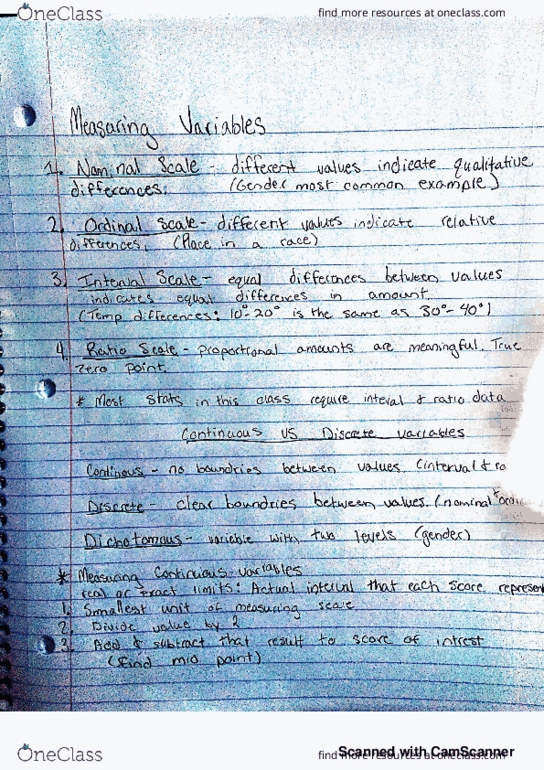 OneClass
find more resources at oneclass.com
Measuring Variables
1. Nominal Scale - different values indicate qualitative
differences. (Gender most common example)
2. Ordinal Scale - different values indicate relative
differences. (Place in a race)
3. Interval Scale - equal differences between values
indicates equal differences in amount.
(Temp differences: 10°-20° is the same as 30°-40°)
4. Ratio Scale - proportional amounts are meaningful. True
zero point.
* Most stats in this class require inteval & ratio data
Continuous VS Discrete variables
Continous - no boundries between values (interval &
Discrete - clear boundries between values. (nominal &
Dichotomous - variable with two levels (gender)
* Measuring Continuous variables
real or exact limits: Actual interval that each score represen
1. Smallest unit of measuring scale
2. Divide value by 2
3. Add & subtract that result to score of intrest
(find mid point)
OneClass
find more resources at oneclass.com
Scanned with CamScanner